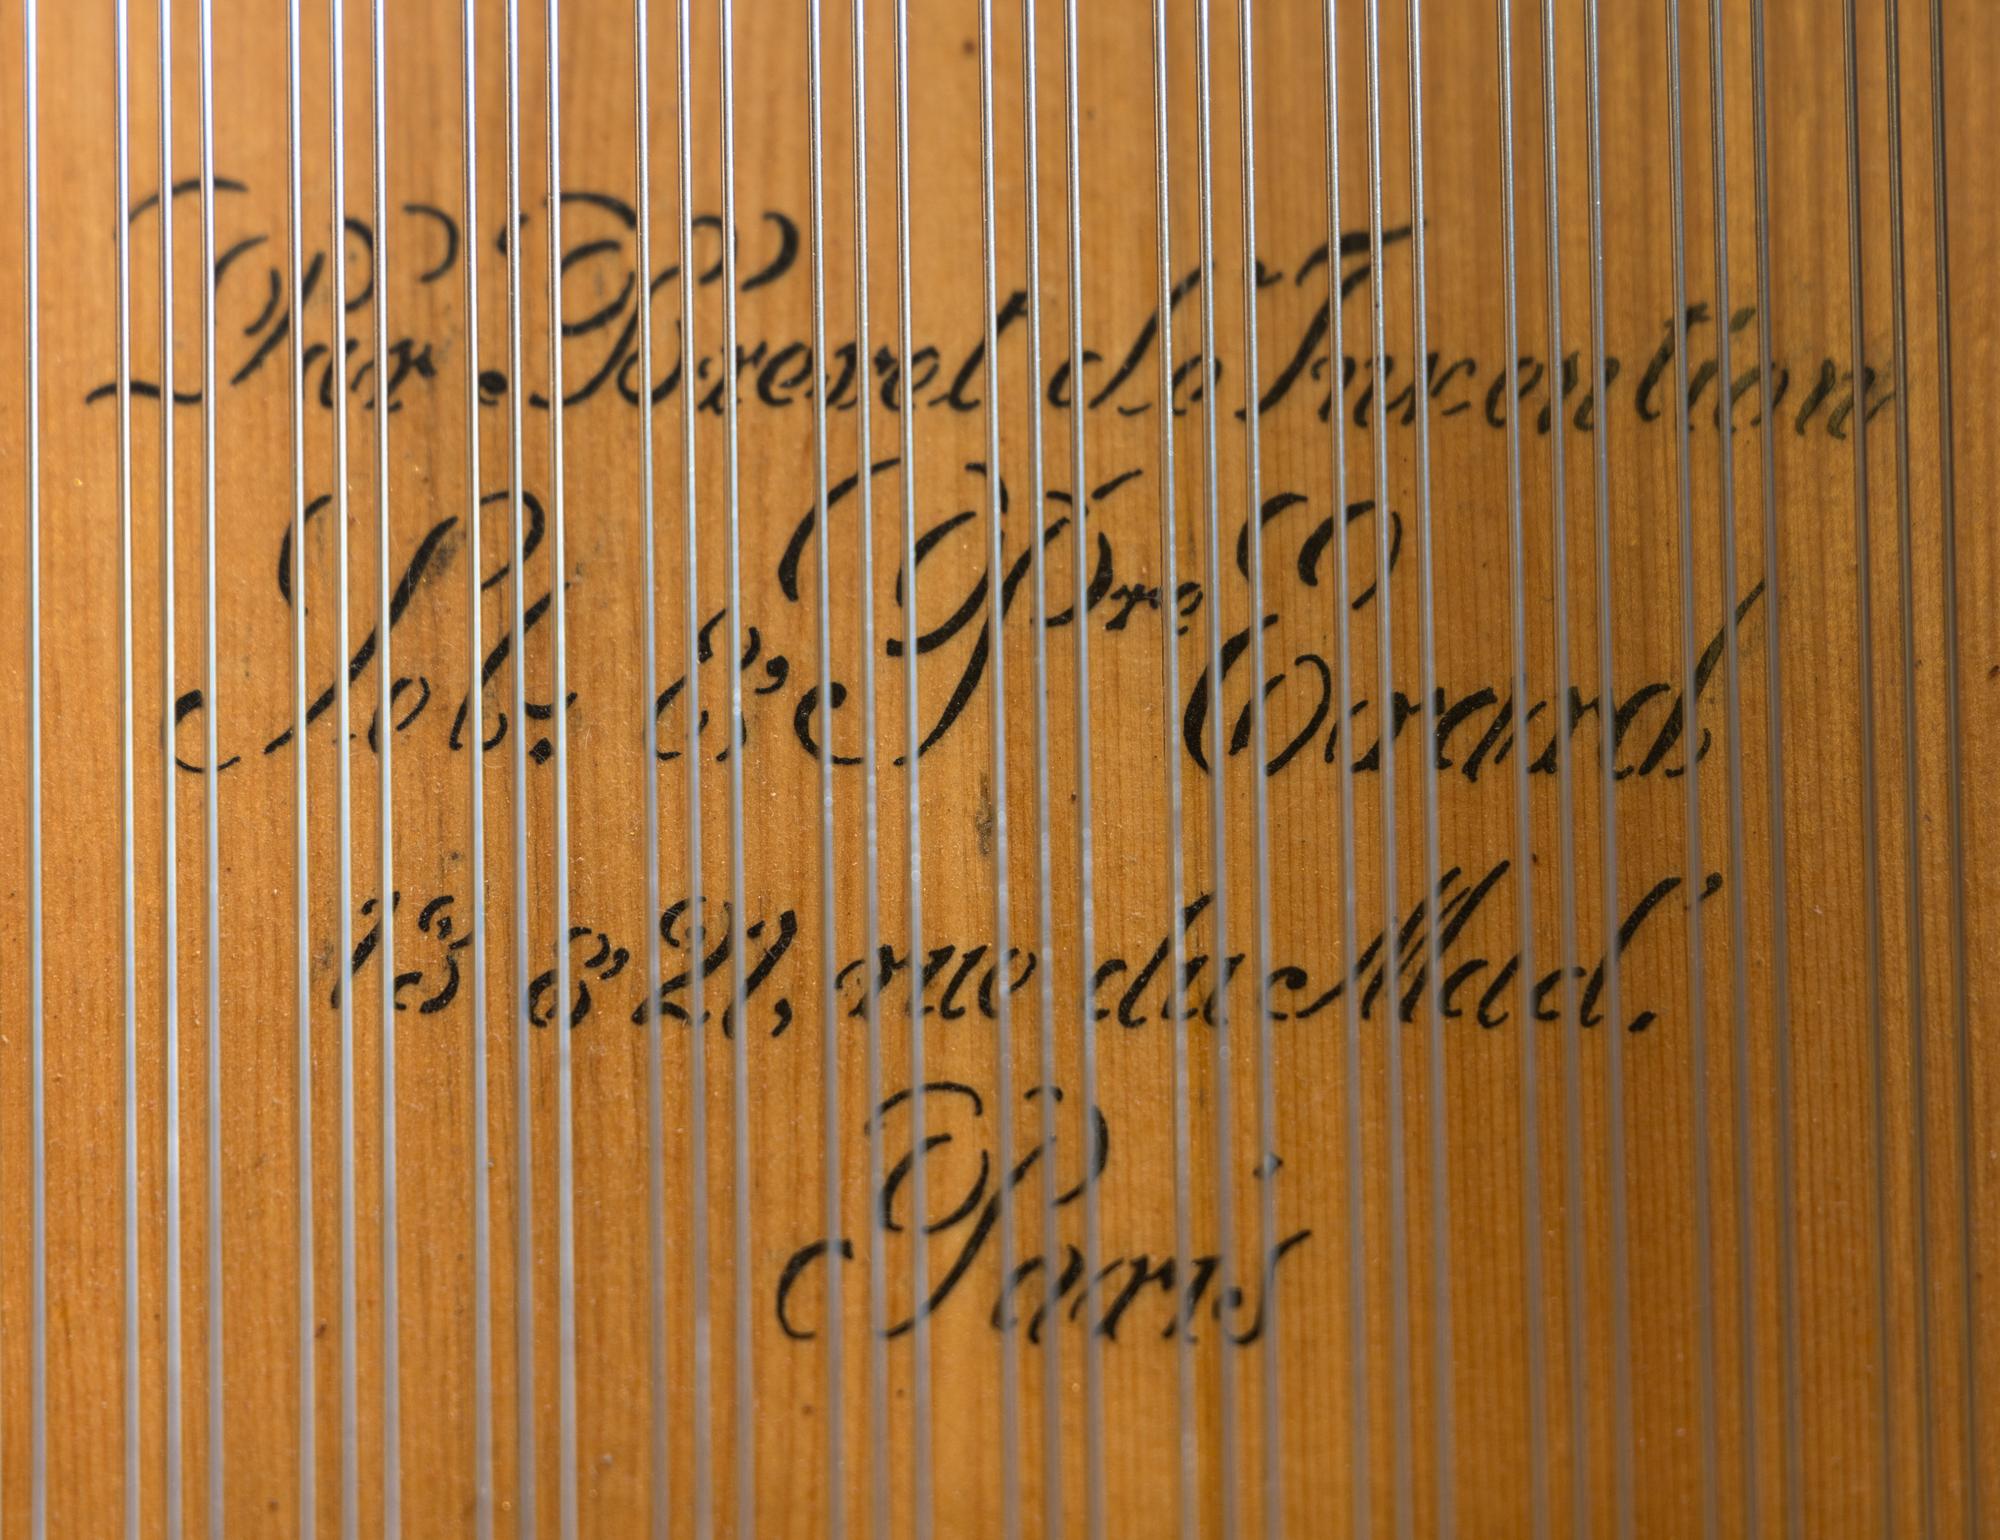 Par Brevet d'Invention
Seb: & Pre Erard
13 & 21, rue du Mail.
Paris